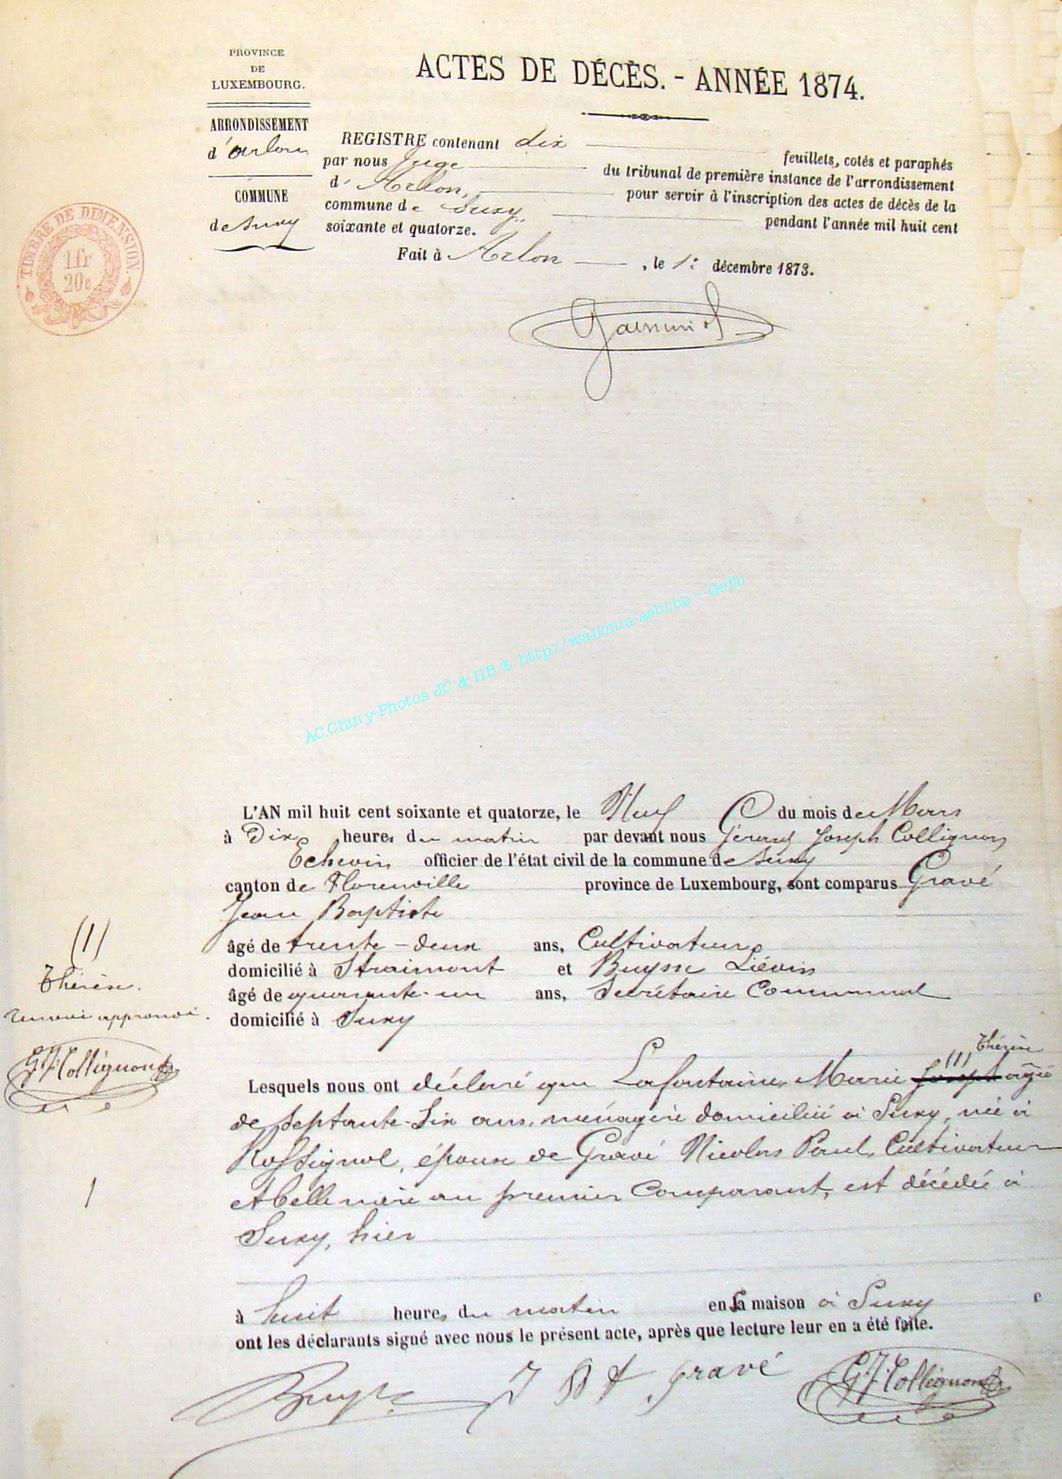 PROVINCE
DE
LUXEMBOURG.
ARRONDISSEMENT
d'Arlon
COMMUNE
de Suxy
TIMBRE DE DIMENSION.
1fr
20c
ACTES DE DÉCÈS. - ANNÉE 1874.
REGISTRE contenant dix feuillets, cotés et paraphés
par nous Juge du tribunal de première instance de l'arrondissement
d' Arlon, pour servir à l'inscription des actes de décès de la
commune de Suxy, pendant l'année mil huit cent
soixante et quatorze.
Fait à Arlon, le 1er décembre 1873.
AC.Chiny-Photos JC & HB & http//wallonia-asbl.be --Geflo
L'AN mil huit cent soixante et quatorze, le Neuf du mois de Mars
à Dix heures du matin par devant nous Gérard Joseph Collignon
Echevin officier de l'état civil de la commune de Suxy
canton de Florenville province de Luxembourg, sont comparus Gravé
Jean Baptiste
âgé de trente-deux ans, Cultivateur
domicilié à Straimont et Buysse Liévin
âgé de quarante-un ans, Secrétaire Communal
domicilié à Suxy
(1)
Thérèse.
renvoi approuvé.
G.J. Collignon
(1) Thérèse
Lesquels nous ont déclaré que Lafontaine, Marie Joseph âgée
de septante-six ans, ménagère domiciliée à Suxy, née à
Rossignol, épouse de Gravé Nicolas Paul, Cultivateur
et belle mère au premier Comparant, est décédée à
Suxy, hier
1
à huit heures du matin en sa maison à Suxy e
ont les déclarants signé avec nous le présent acte, après que lecture leur en a été faite.
Buysse J Bt Gravé G.J. Collignon